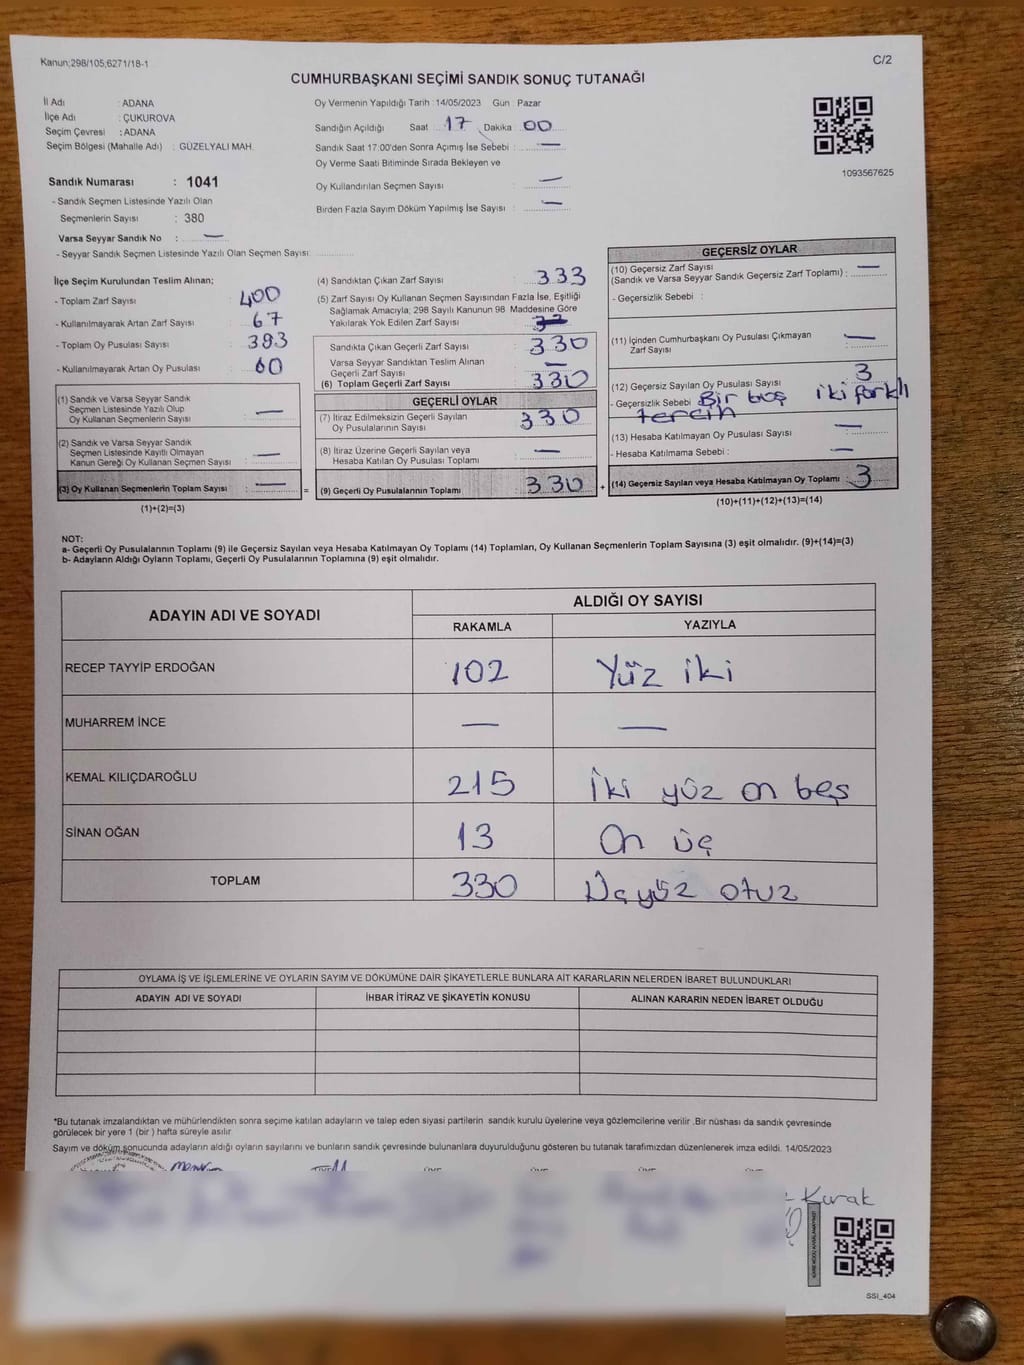 Kanun;298/105,6271/18-1
C/2
CUMHURBAŞKANI SEÇİMİ SANDIK SONUÇ TUTANAĞI
İl Adı : ADANA
İlçe Adı : ÇUKUROVA
Seçim Çevresi : ADANA
Seçim Bölgesi (Mahalle Adı) : GÜZELYALI MAH.
Sandık Numarası : 1041
- Sandık Seçmen Listesinde Yazılı Olan
Seçmenlerin Sayısı : 380
Varsa Seyyar Sandık No : —
- Seyyar Sandık Seçmen Listesinde Yazılı Olan Seçmen Sayısı:
Oy Vermenin Yapıldığı Tarih : 14/05/2023 Gün : Pazar
Sandığın Açıldığı Saat 17 Dakika 00
Sandık Saat 17:00'den Sonra Açımış İse Sebebi : —
Oy Verme Saati Bitiminde Sırada Bekleyen ve
Oy Kullandırılan Seçmen Sayısı : —
Birden Fazla Sayım Döküm Yapılmış İse Sayısı : —
1093567625
İlçe Seçim Kurulundan Teslim Alınan;
- Toplam Zarf Sayısı : 400
- Kullanılmayarak Artan Zarf Sayısı : 67
- Toplam Oy Pusulası Sayısı : 393
- Kullanılmayarak Artan Oy Pusulası : 60
(1) Sandık ve Varsa Seyyar Sandık
Seçmen Listesinde Yazılı Olup
Oy Kullanan Seçmenlerin Sayısı : —
(2) Sandık ve Varsa Seyyar Sandık
Seçmen Listesinde Kayıtlı Olmayan
Kanun Gereği Oy Kullanan Seçmen Sayısı : —
(3) Oy Kullanan Seçmenlerin Toplam Sayısı : — =
(1)+(2)=(3)
(4) Sandıktan Çıkan Zarf Sayısı : 333
(5) Zarf Sayısı Oy Kullanan Seçmen Sayısından Fazla İse, Eşitliği
Sağlamak Amacıyla; 298 Sayılı Kanunun 98 Maddesine Göre
Yakılarak Yok Edilen Zarf Sayısı :
Sandıkta Çıkan Geçerli Zarf Sayısı : 330
Varsa Seyyar Sandıktan Teslim Alınan
Geçerli Zarf Sayısı : —
(6) Toplam Geçerli Zarf Sayısı : 330
GEÇERLİ OYLAR
(7) İtiraz Edilmeksizin Geçerli Sayılan
Oy Pusulalarının Sayısı : 330
(8) İtiraz Üzerine Geçerli Sayılan veya
Hesaba Katılan Oy Pusulası Toplamı : —
(9) Geçerli Oy Pusulalarının Toplamı : 330 +
GEÇERSİZ OYLAR
(10) Geçersiz Zarf Sayısı
(Sandık ve Varsa Seyyar Sandık Geçersiz Zarf Toplamı) : —
- Geçersizlik Sebebi :
(11) İçinden Cumhurbaşkanı Oy Pusulası Çıkmayan
Zarf Sayısı : —
(12) Geçersiz Sayılan Oy Pusulası Sayısı : 3
- Geçersizlik Sebebi Bir boş iki farklı
tercih
(13) Hesaba Katılmayan Oy Pusulası Sayısı : —
- Hesaba Katılmama Sebebi : —
(14) Geçersiz Sayılan veya Hesaba Katılmayan Oy Toplamı : 3
(10)+(11)+(12)+(13)=(14)
NOT:
a- Geçerli Oy Pusulalarının Toplamı (9) ile Geçersiz Sayılan veya Hesaba Katılmayan Oy Toplamı (14) Toplamları, Oy Kullanan Seçmenlerin Toplam Sayısına (3) eşit olmalıdır. (9)+(14)=(3)
b- Adayların Aldığı Oyların Toplamı, Geçerli Oy Pusulalarının Toplamına (9) eşit olmalıdır.
ADAYIN ADI VE SOYADI
ALDIĞI OY SAYISI
RAKAMLA YAZIYLA
RECEP TAYYİP ERDOĞAN 102 Yüz iki
MUHARREM İNCE — —
KEMAL KILIÇDAROĞLU 215 İki yüz on beş
SİNAN OĞAN 13 On üç
TOPLAM 330 Üçyüz otuz
OYLAMA İŞ VE İŞLEMLERİNE VE OYLARIN SAYIM VE DÖKÜMÜNE DAİR ŞİKAYETLERLE BUNLARA AİT KARARLARIN NELERDEN İBARET BULUNDUKLARI
ADAYIN ADI VE SOYADI İHBAR İTİRAZ VE ŞİKAYETİN KONUSU ALINAN KARARIN NEDEN İBARET OLDUĞU
*Bu tutanak imzalandıktan ve mühürlendikten sonra seçime katılan adayların ve talep eden siyasi partilerin sandık kurulu üyelerine veya gözlemcilerine verilir .Bir nüshası da sandık çevresinde
görülecek bir yere 1 (bir ) hafta süreyle asılır
Sayım ve döküm sonucunda adayların aldığı oyların sayılarını ve bunların sandık çevresinde bulunanlara duyurulduğunu gösteren bu tutanak tarafımızdan düzenlenerek imza edildi. 14/05/2023
Kurak
SSI_404